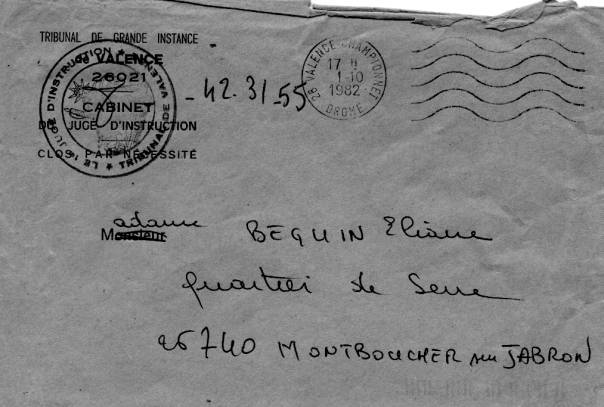 TRIBUNAL DE GRANDE INSTANCE
VALENCE
26021
CABINET
DU JUGE D'INSTRUCTION
CLOS PAR NÉCESSITÉ
LE JUGE D'INSTRUCTION ★ TRIBUNAL DE VALENCE ★
-42.31-55
26 VALENCE-CHAMPIONNET
17 H
1.10
1982
DROME
Monsieur adame BEGUIN Eliane
quartier de Serre
26740 MONTBOUCHER sur JABRON